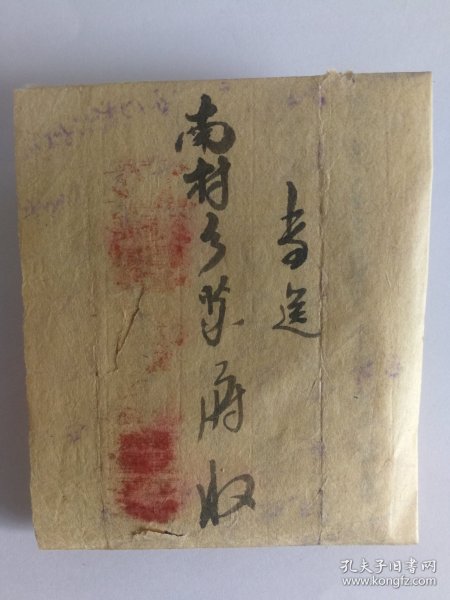 专送
南村乡政府收
孔夫子旧书网
www.kongfz.com